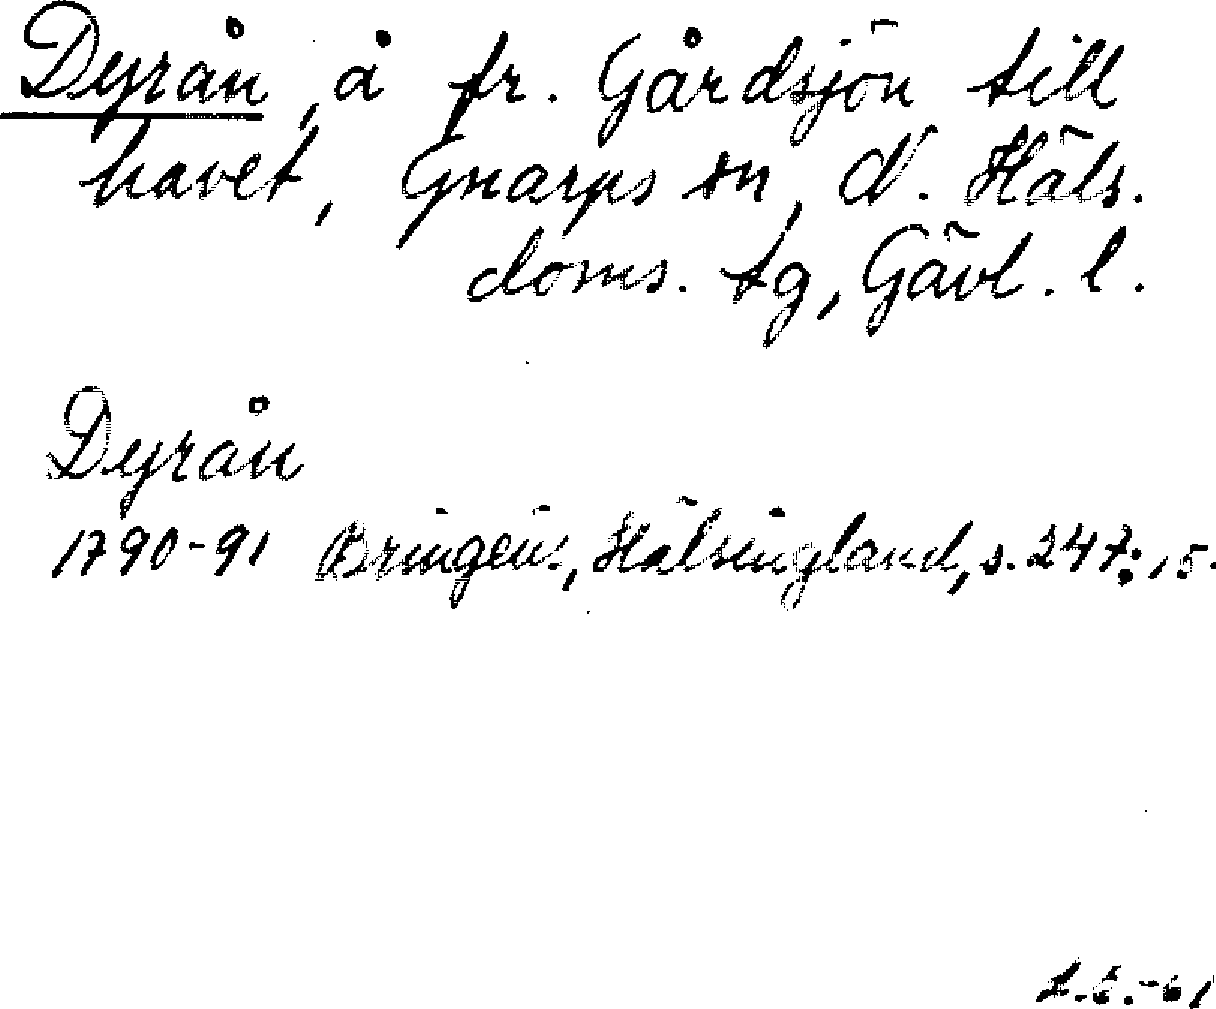 Dyrån, å fr. Gårdsjön till
havet, Gnarps sn, N. Häls.
doms. tg, Gävl. l.
Dyrån
1790-91 Bringéus, Hälsingland, s. 247:15.